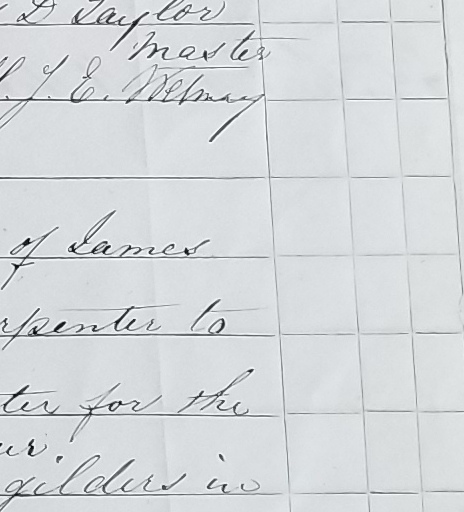 D Taylor
Master
J. E.
of James
rpenter to
ter for the
ur
gilders in